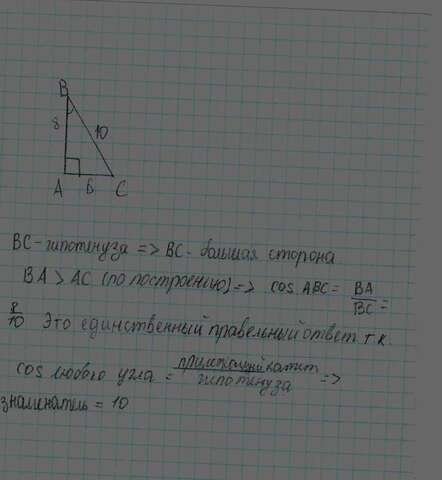 B
8
10
A
6
C
BC - гипотенуза => BC - большая сторона
BA > AC (по построению) => cos ABC = BA/BC =
8/10 Это единственный правельный ответ т.к.
cos любого угла = прилежащий катит/гипотенуза =>
знаменатель = 10